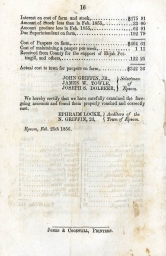 16
Interest on cost of farm and stock, $275 91
Amount of Stock less than in Feb. 1855, 53 90
Amount produce less in Feb. 1855, 62 91
Due Superintendent on farm, 192 79
Cost of Paupers on farm,
Cost of maintaining a pauper per week, 1 13
Received from County for the support of Elijah Pet-
tingill, and others,
Actual cost to town for paupers on farm,
JOHN GRIFFIN, JR., } Selectmen
JAMES W. TOWLE, } of
JOSEPH S. DOLBEER, } Epsom.
We hereby certify that we have carefully examined the fore-
going amounts and found them properly vouched and correctly
cast.
EPHRAIM LOCKE, } Auditors of the
N. GRIFFIN, 2d, } Town of Epsom.
Epsom, Feb. 25th 1856.
JONES & COGSWELL, PRINTERS.